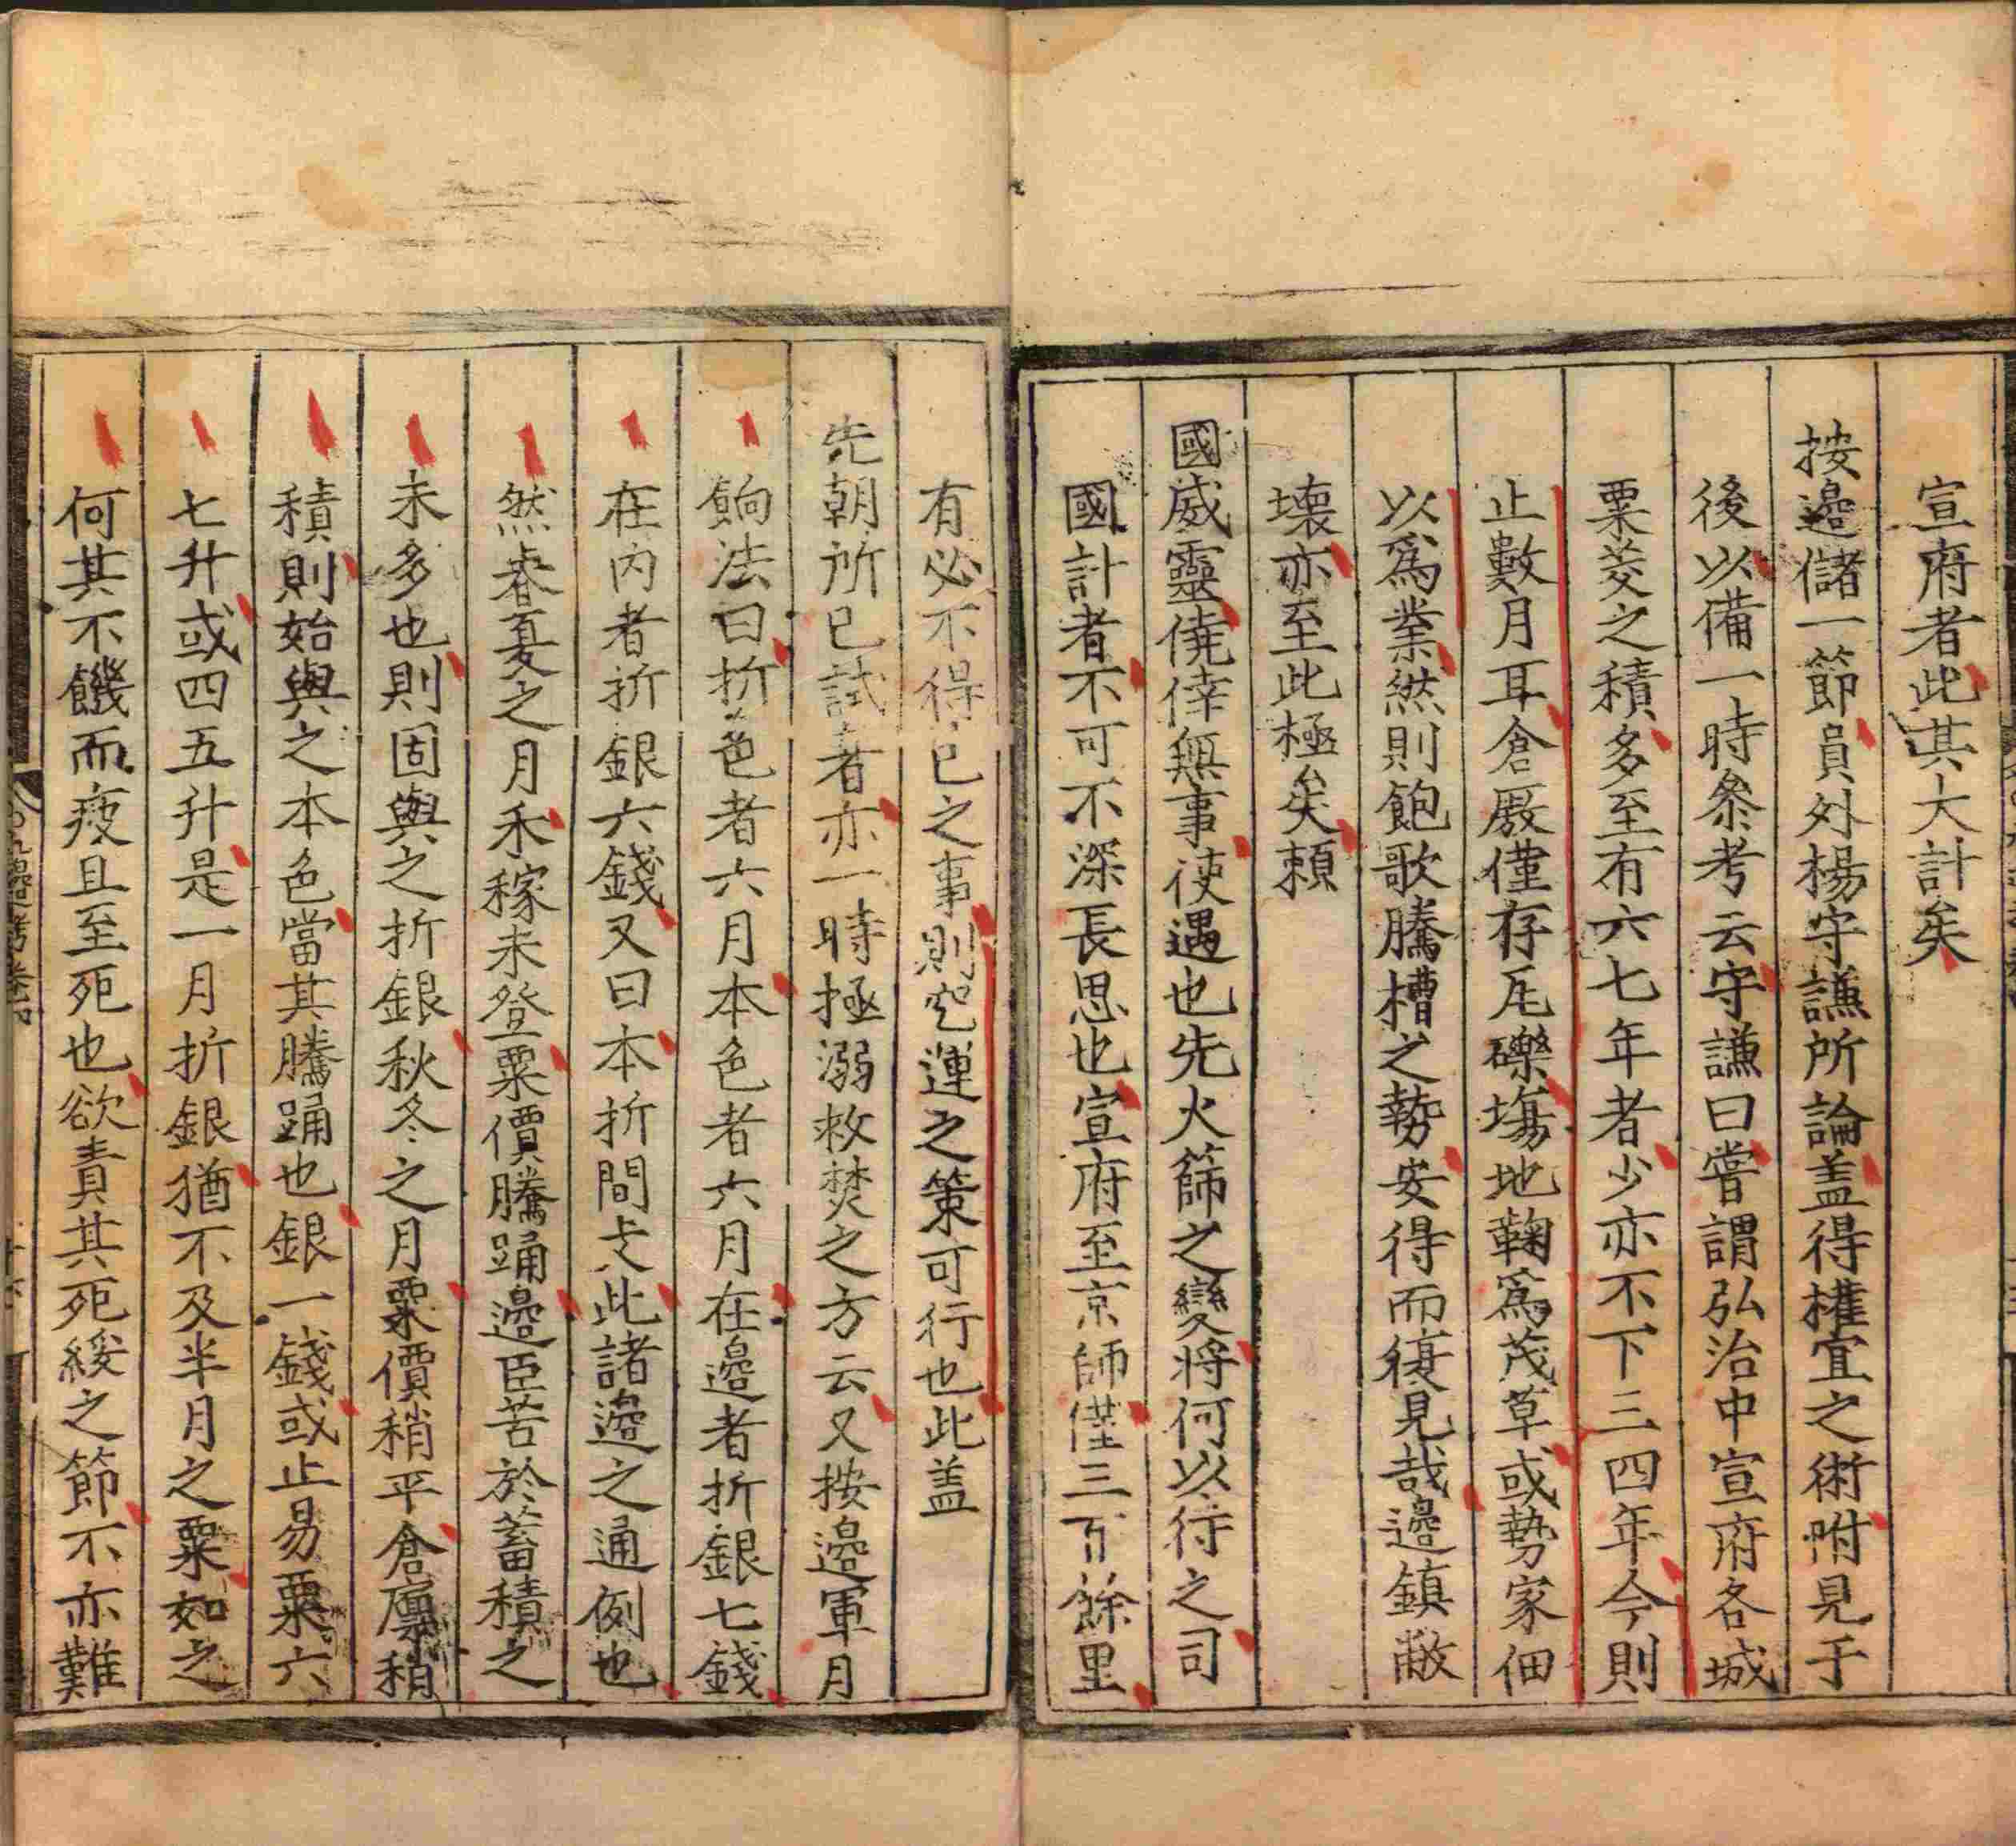 宣府者此其大計矣
按邉儲一節員外楊守謙所論盖得權宜之術附見于
後以備一時叅考云守謙曰嘗謂弘治中宣府各城
粟茭之積多至有六七年者少亦不下三四年今則
止數月耳倉厫僅存瓦礫塲地鞠爲茂草或勢家佃
以爲業然則飽歌騰槽之勢安得而復見哉邉鎮敝
壞亦至此極矣頼
國威靈僥倖無事使遇也先火篩之變将何以待之司
國計者不可不深長思也宣府至京師僅三百餘里
有必不得已之事則空運之策可行也此盖
先朝所已試者亦一時拯溺救焚之方云又按邉軍月
餉法曰折色者六月本色者六月在邉者折銀七錢
在内者折銀六錢又曰本折間支此諸邉之通例也
然春夏之月禾稼未登粟價騰踊邉臣苦於蓄積之
未多也則固與之折銀秋冬之月粟價稍平倉廪稍
積則始與之本色當其騰踊也銀一錢或止易粟六
七升或四五升是一月折銀猶不及半月之粟如之
何其不饑而疫且至死也欲責其死綏之節不亦難